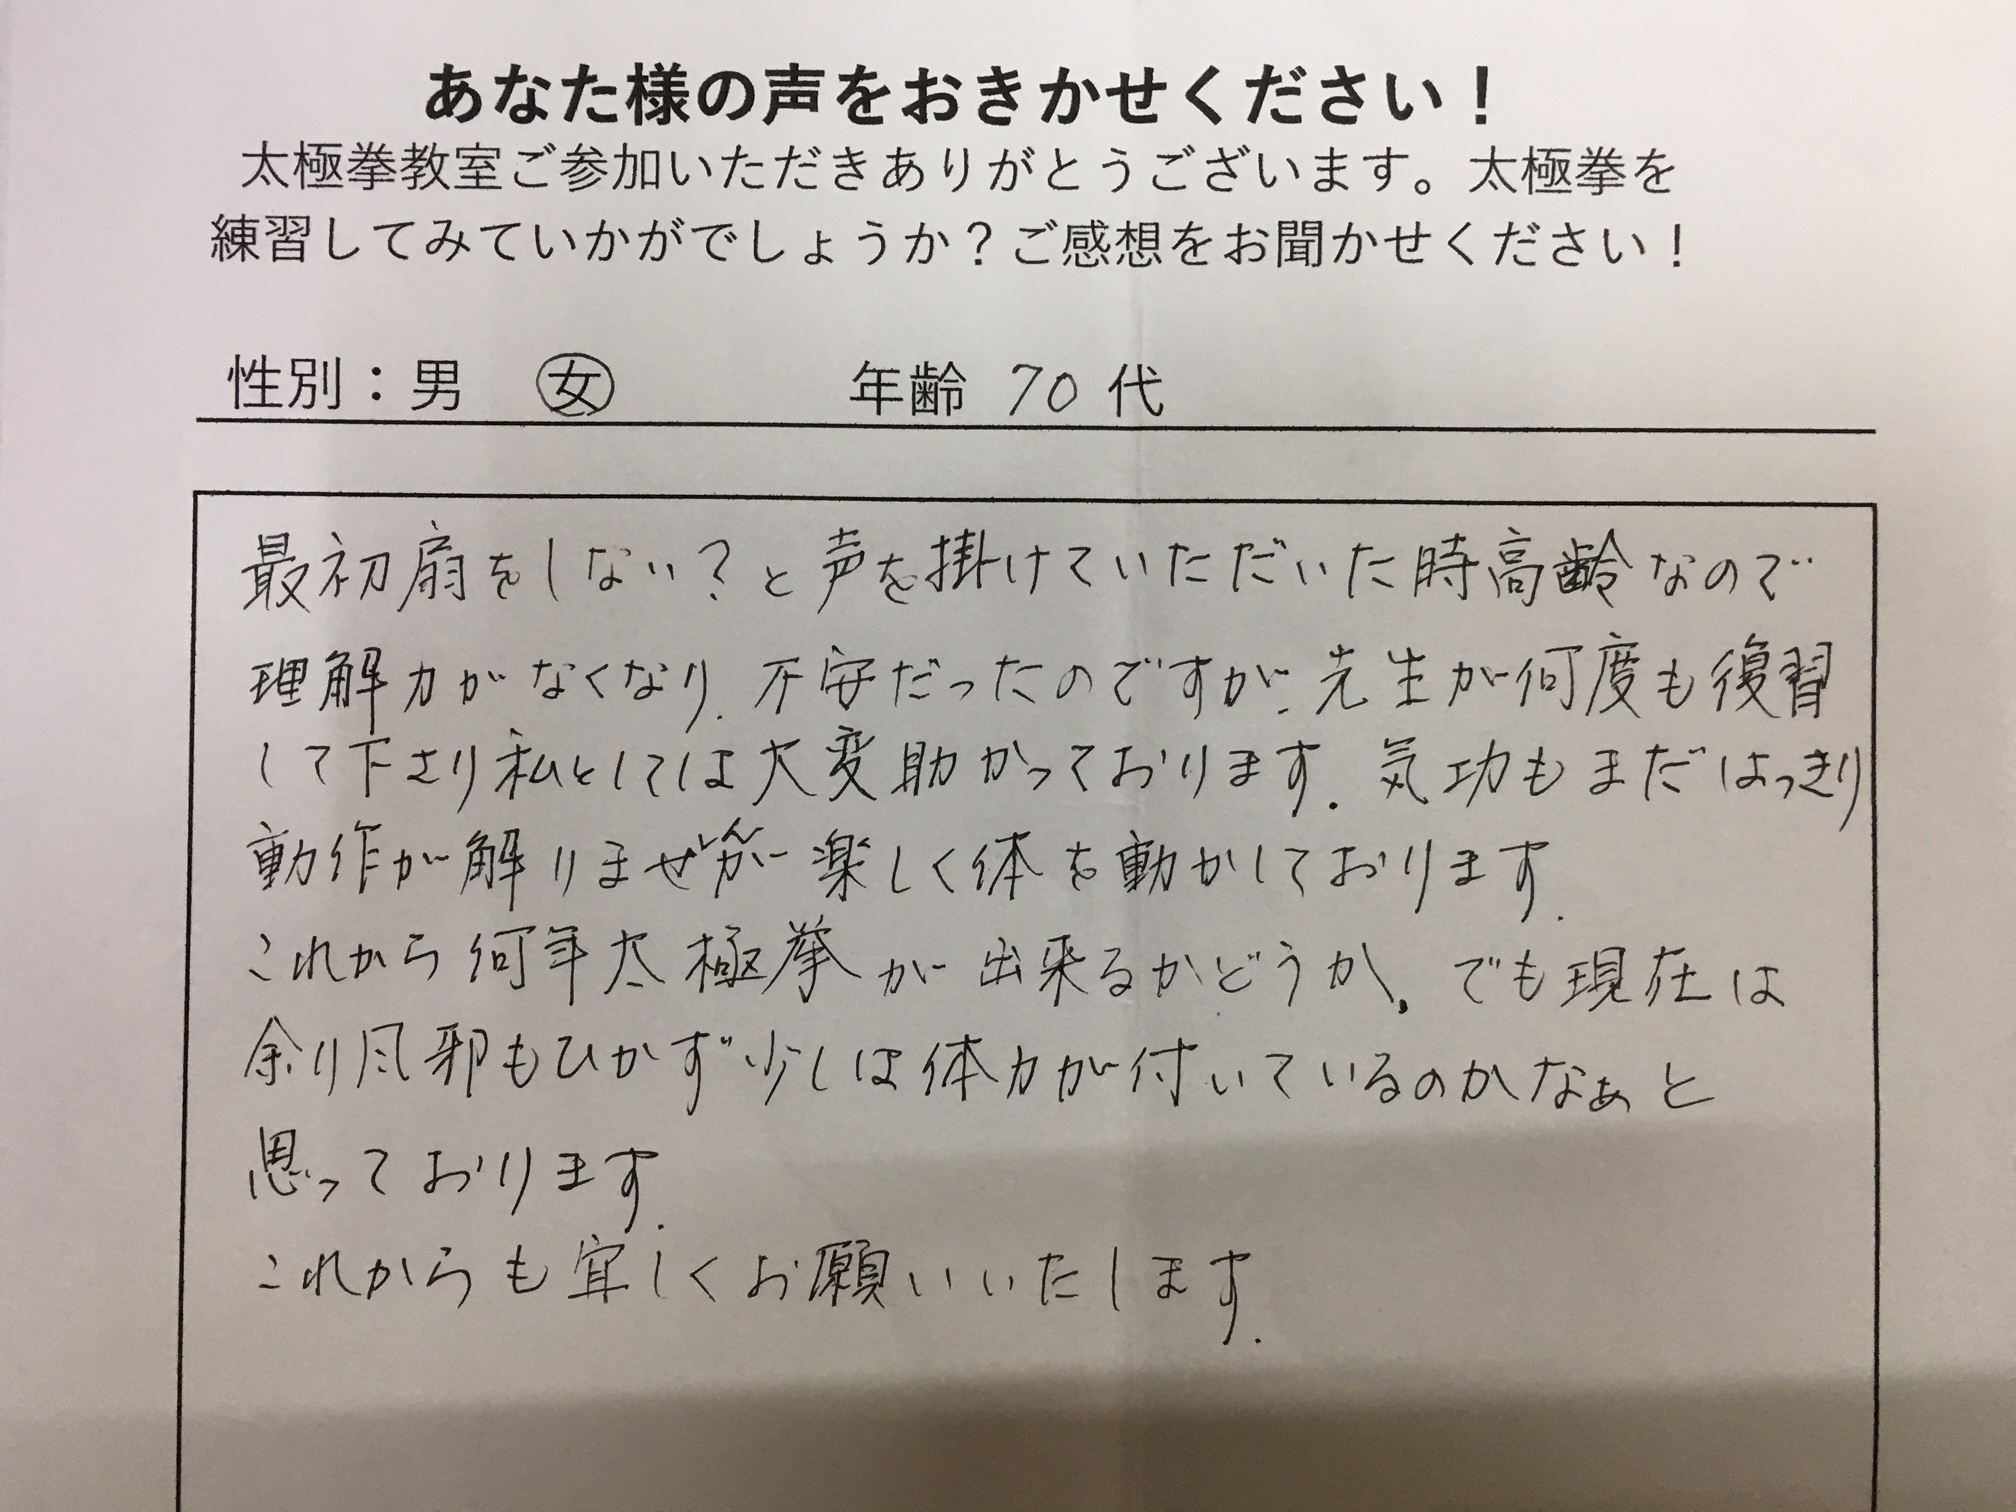 あなた様の声をおきかせください！
太極拳教室ご参加いただきありがとうございます。太極拳を
練習してみていかがでしょうか？ご感想をお聞かせください！
性別：男　女　年齢 70 代
最初扇をしない？と声を掛けていただいた時高齢なので
理解力がなくなり、不安だったのですが、先生が何度も復習
して下さり私としては大変助かっております。気功もまだはっきり
動作が解りませんが楽しく体を動かしております。
これから何年太極拳が出来るかどうか。でも現在は
余り風邪もひかず少しは体力が付いているのかなぁと
思っております。
これからも宜しくお願いいたします。